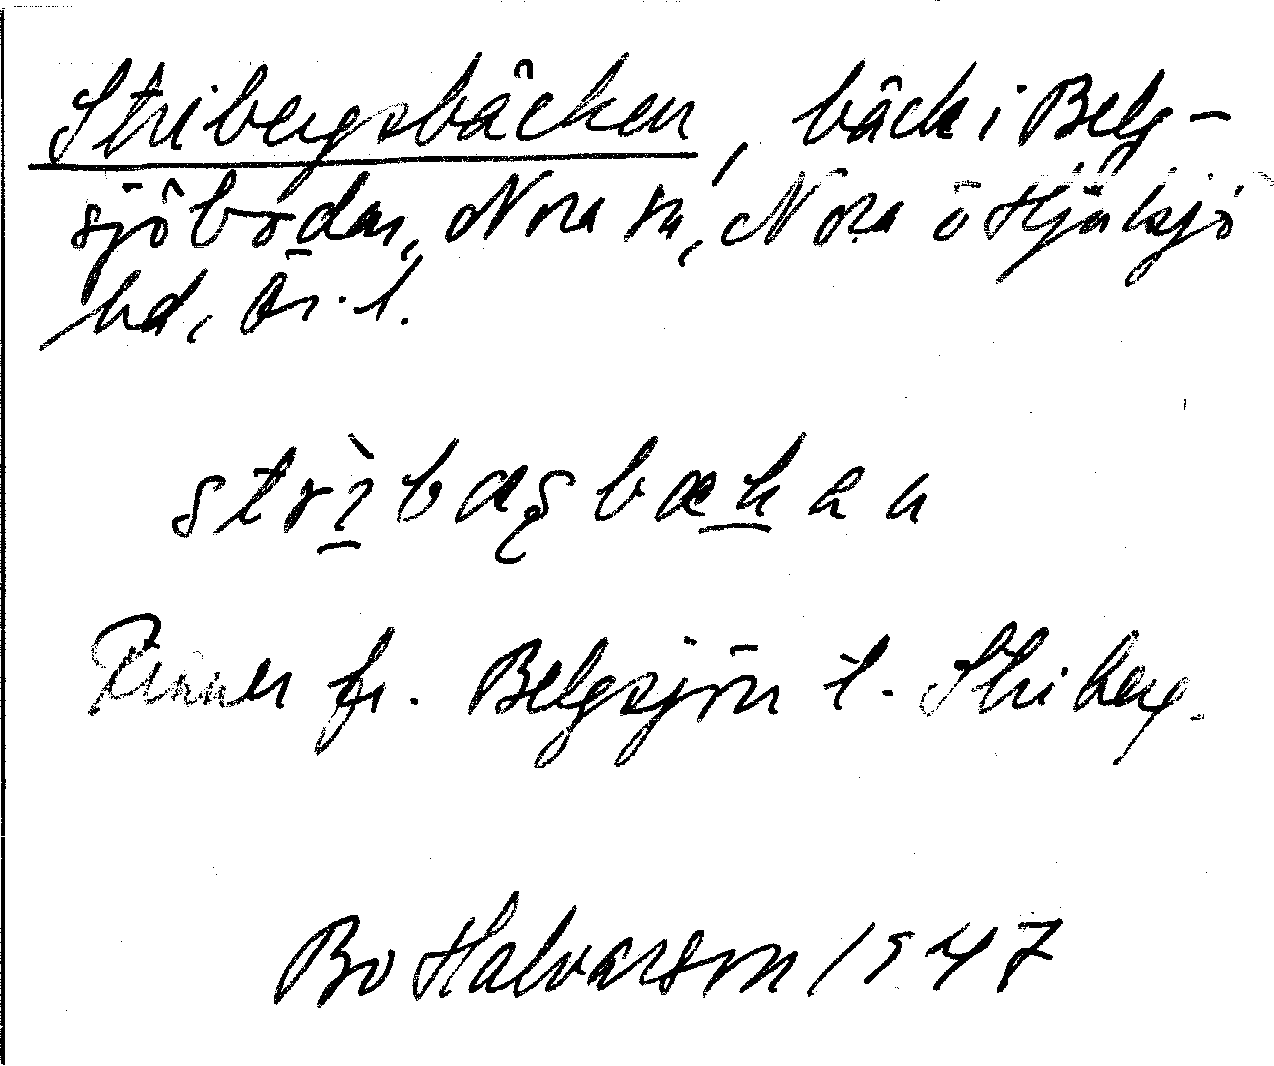 Stribergsbäcken, bäck i Belg-
sjöbodar, Nora sn, Nora o Hjulsjö
hd, Ör. l.
strìbæʂbækan
Rinner fr. Belgsjön t. Striberg.
Bo Halvarson 1947